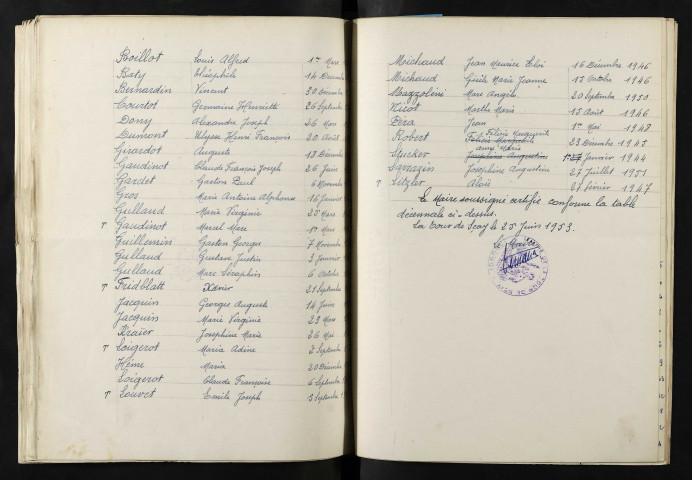 Boillot Louis Alfred 1er Mars
Baty Théophile 14 Décembre
Bernardin Vincent 30 Décembre
Courtot Germaine Henriette 26 Septembre
Dony Alexandre Joseph 26 Mars
Dumont Ulysse Henri François 20 Août
Girardot Auguste 18 Décembre
Gaudinot Claude François Joseph 26 Juin
Gardet Gaston Paul 6 Novembre
Gros Marie Antoine Alphonse 16 Janvier
Guillaud Marie Virginie 25 Mars
T Gaudinot Marcel Marc 1er Mars
Guillemin Gaston Georges 7 Novembre
Guillaud Gustave Justin 3 Janvier
Guillaud Marc Séraphin 6 Octobre
T Fridblatt Xavier 21 Septembre
Jacquin Georges Auguste 14 Juin
Jacquin Marie Virginie 23 Mars
Kraier Joséphine Marie 26 Mai
T Loigerot Maria Adine 2 Septembre
Hême Maria 20 Décembre
Loigerot Claude Françoise 6 Septembre
T Louvet Emile Joseph 3 Septembre
Michaud Jean Maurice Eloi 16 Décembre 1946
Michaud Cécile Marie Jeanne 15 Octobre 1946
Mazzoléni Marc Angelo 20 Septembre 1950
Nicot Marthe Marie 15 Août 1946
Pera Jean 1er Mai 1948
Robert Félicie Marguerite 23 Décembre 1945
Stucker Anna Marie 27 Janvier 1944
Sarrazin Joséphine Augustine 27 Juillet 1951
T Sitzler Aloïs 27 Février 1947
Le Maire soussigné certifie conforme la table
décennale ci-dessus.
La Tour de Scay le 25 Juin 1953.